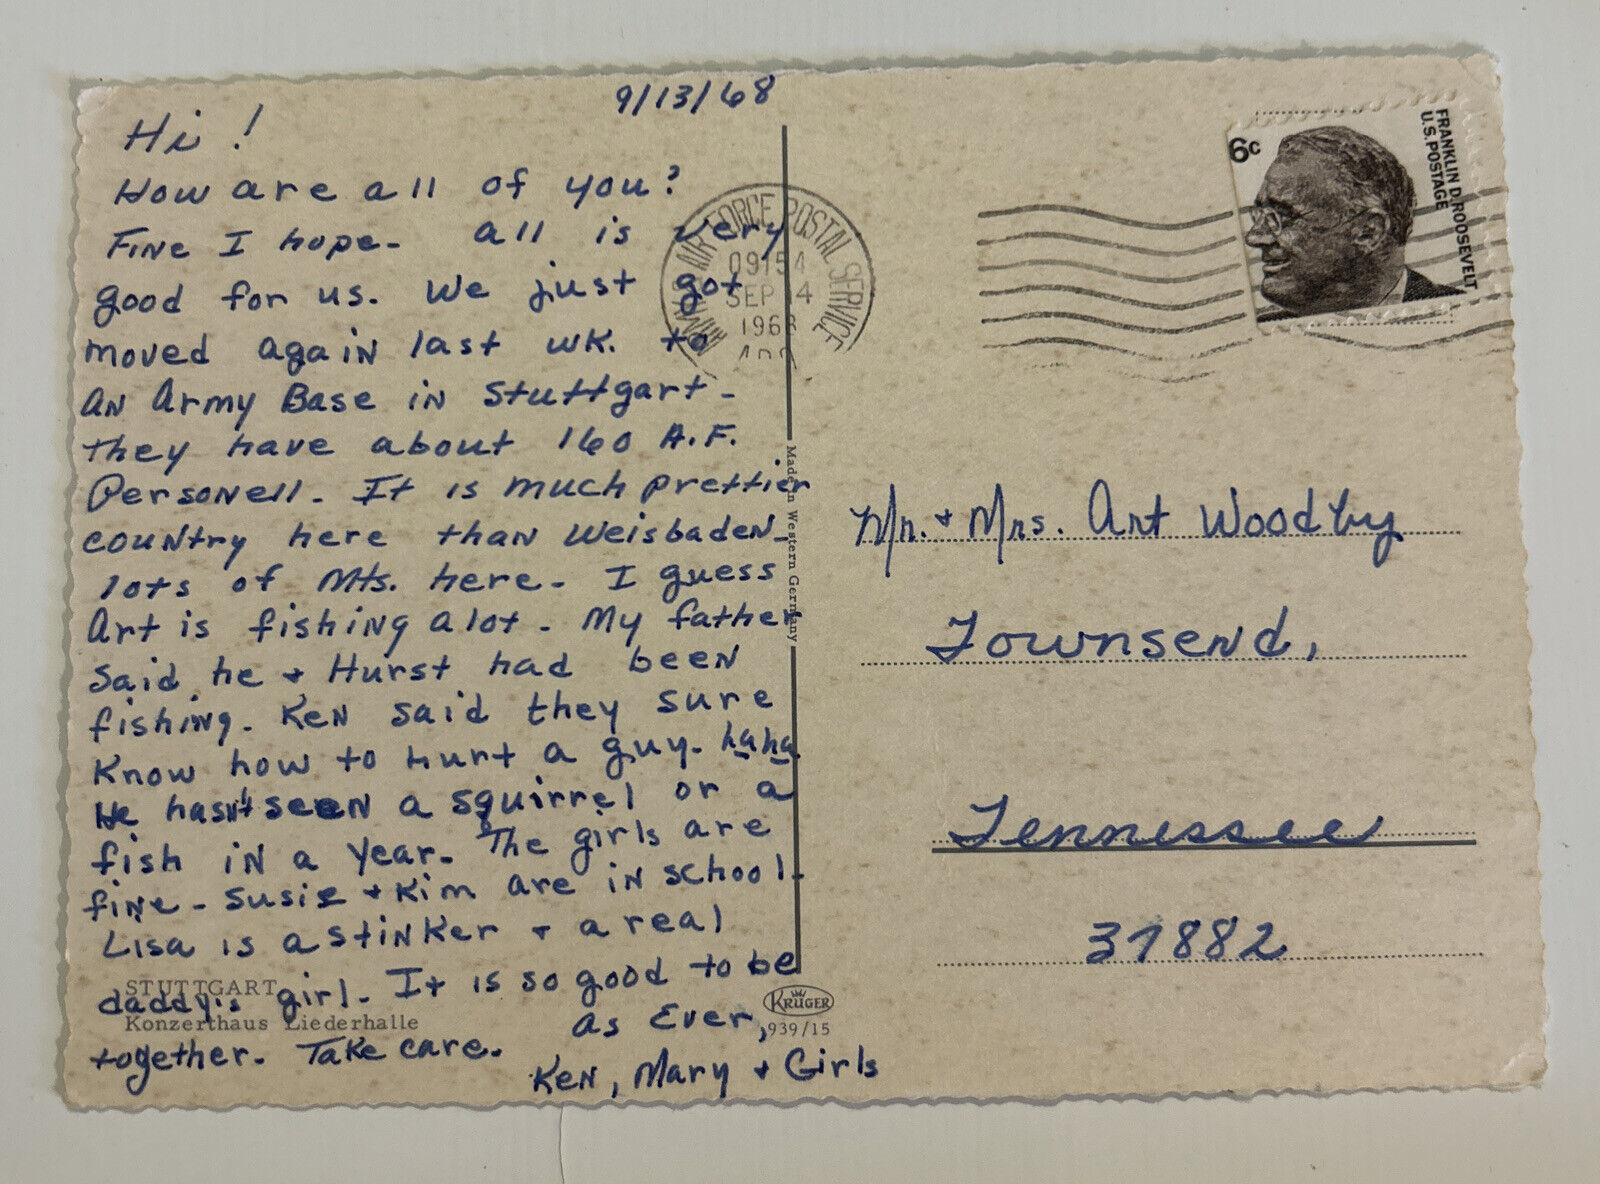 9/13/68
Hi!
How are all of you?
Fine I hope- all is very
good for us. We just got
moved again last wk. to
an Army Base in Stuttgart-
they have about 160 A.F.
Personell. It is much prettier
country here than Weisbaden-
lots of Mts. here- I guess
Art is fishing a lot. My father
said he + Hurst had been
fishing. Ken said they sure
know how to hurt a guy. haha
He hasn't seen a squirrel or a
fish in a year. The girls are
fine- Susie + Kim are in school-
Lisa is a stinker + a real
daddy's girl. It is so good to be
together. Take care.
As Ever,
Ken, Mary + Girls
STUTTGART
Konzerthaus Liederhalle
Made in Western Germany
KRÜGER
939/15
AIR FORCE POSTAL SERVICE
SEP 4
FRANKLIN D. ROOSEVELT
U.S. POSTAGE
6c
Mr. + Mrs. Art Woodby
Townsend,
Tennessee
37882